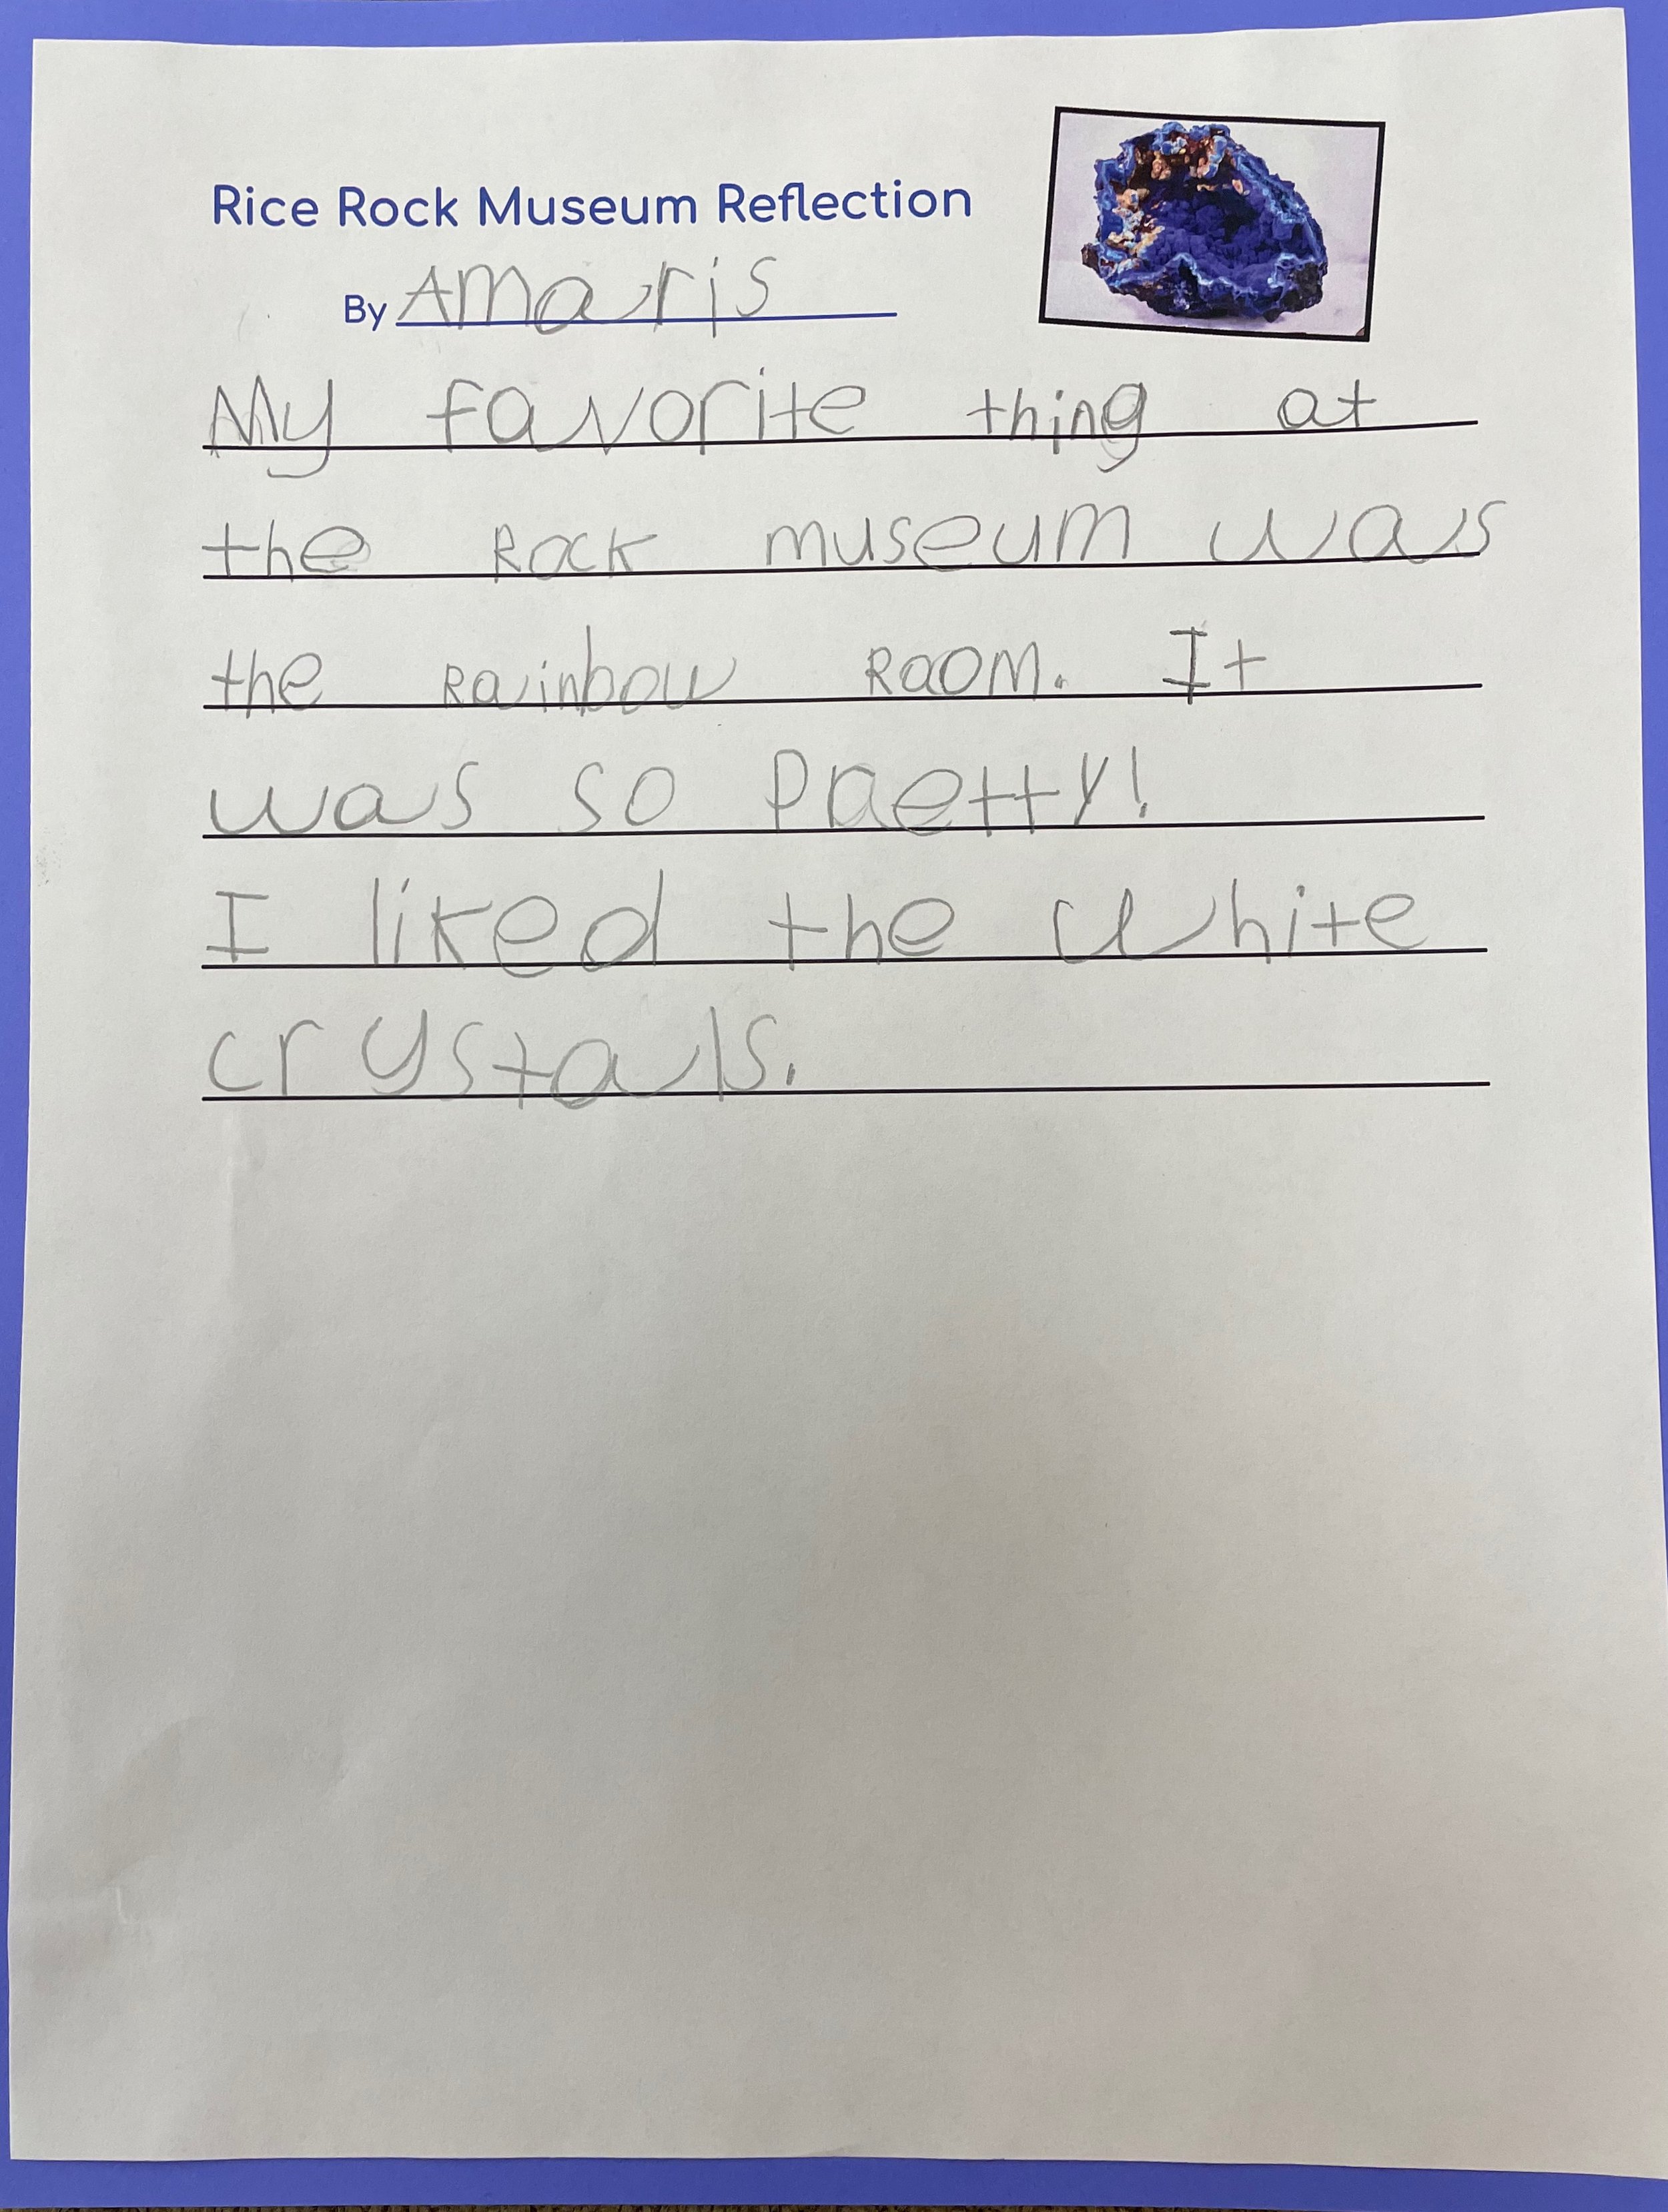 Rice Rock Museum Reflection
By Amaris
My favorite thing at
the Rock museum was
the Rainbow Room. It
was so Praetty!
I liked the white
crystals.